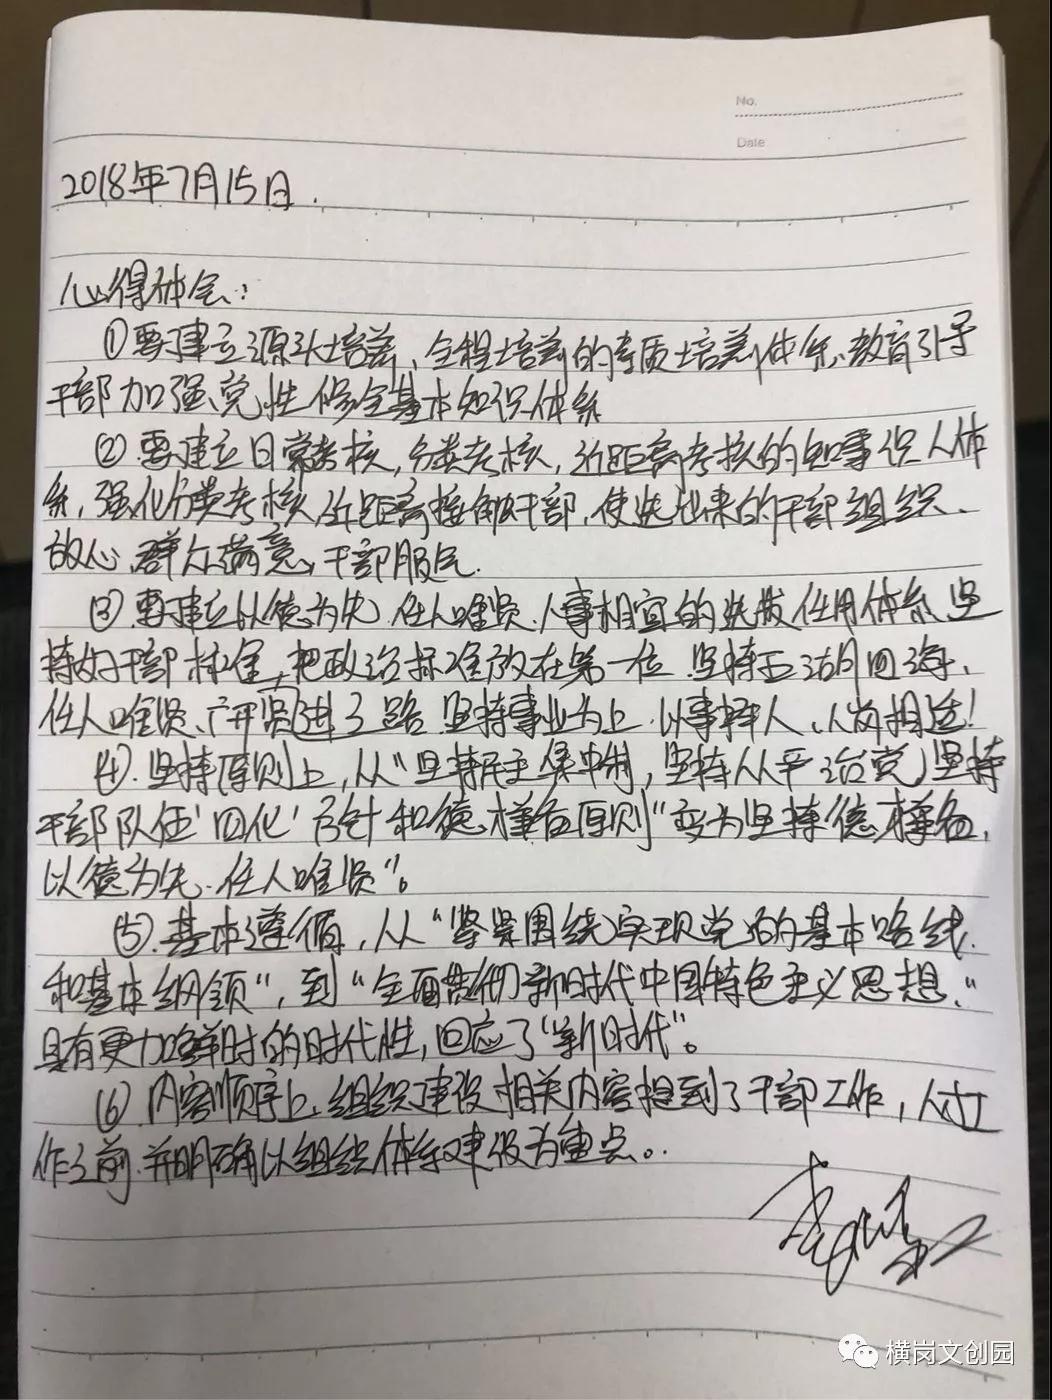 No.
Date
2018年7月15日.
心得体会:
①要建立源头培养、全程培养的素质培养体系、教育引导
干部加强党性修全基本知识体系
②要建立日常考核,分类考核,近距离考核的知事识人体
系,强化分类考核,近距离接触干部,使选出来的干部组织
放心、群众满意,干部服气.
③.要建立以德为先、任人唯贤、人事相宜的选拔任用体系坚
持好干部标准,把政治标准放在第一位.坚持五湖四海、
任人唯贤、广开贤进了路.坚持事业为上.以事择人、人岗相适!
④.坚持原则上,从“坚持民主集中制,坚持从严治党,坚持
干部队伍‘四化’方针和德才兼备原则”变为坚持德才兼备,
以德为先.任人唯贤”。
⑤.基本遵循,从“紧紧围绕实现党的基本路线
和基本纲领”,到“全面贯彻新时代中国特色主义思想,”
具有更加鲜时的时代性,回应了“新时代”。
⑥.内容顺序上,组织建设相关内容提到了干部工作,人才工
作之前.并明确以组织体系建设为重点。
横岗文创园